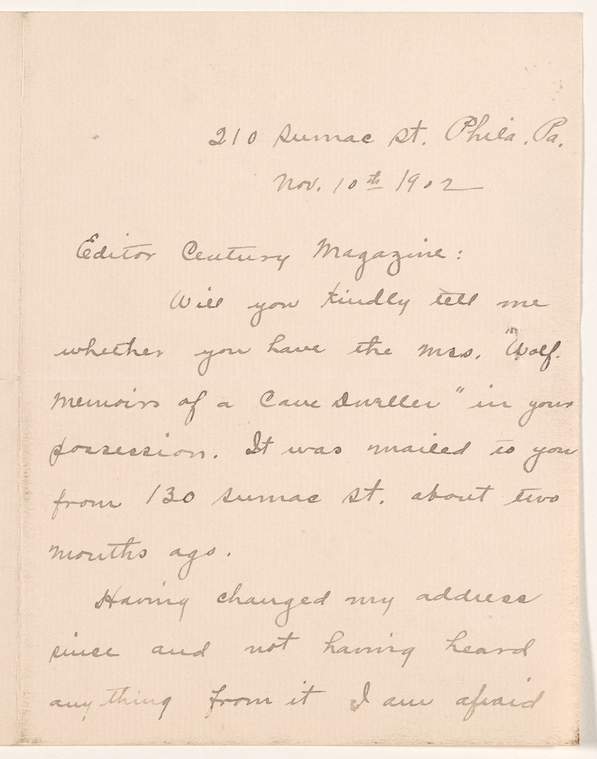 210 Sumac St. Phila. Pa.
Nov. 10th 1902
Editor Century Magazine:
Will you kindly tell me
whether you have the mss. "Wolf.
Memoirs of a Cave Dweller" in your
possession. It was mailed to you
from 130 Sumac St. about two
months ago.
Having changed my address
since and not having heard
anything from it I am afraid